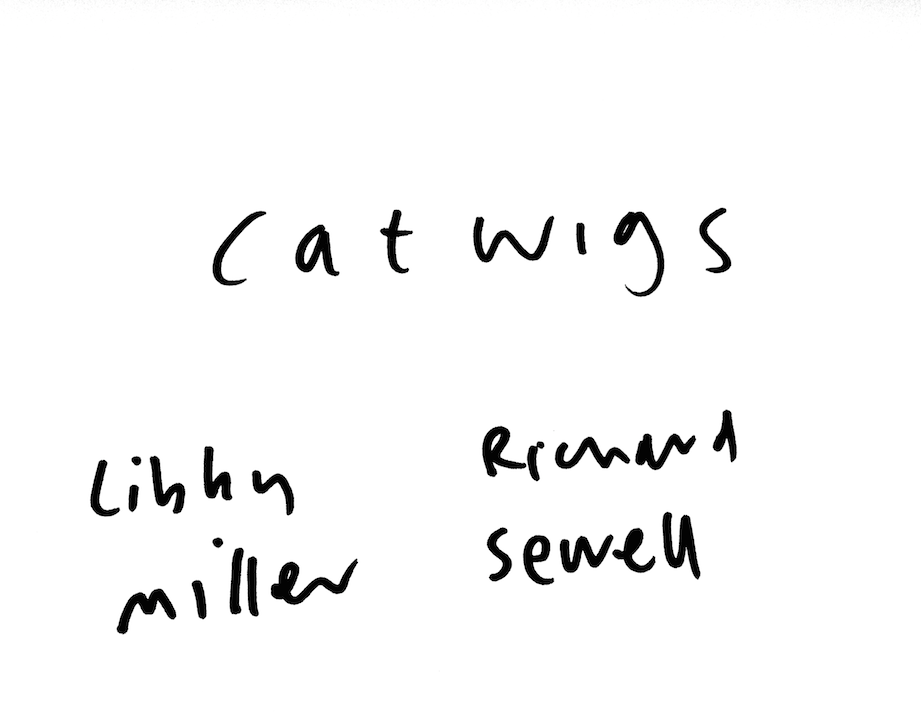 catwigs
Libby
miller
Richard
sewell